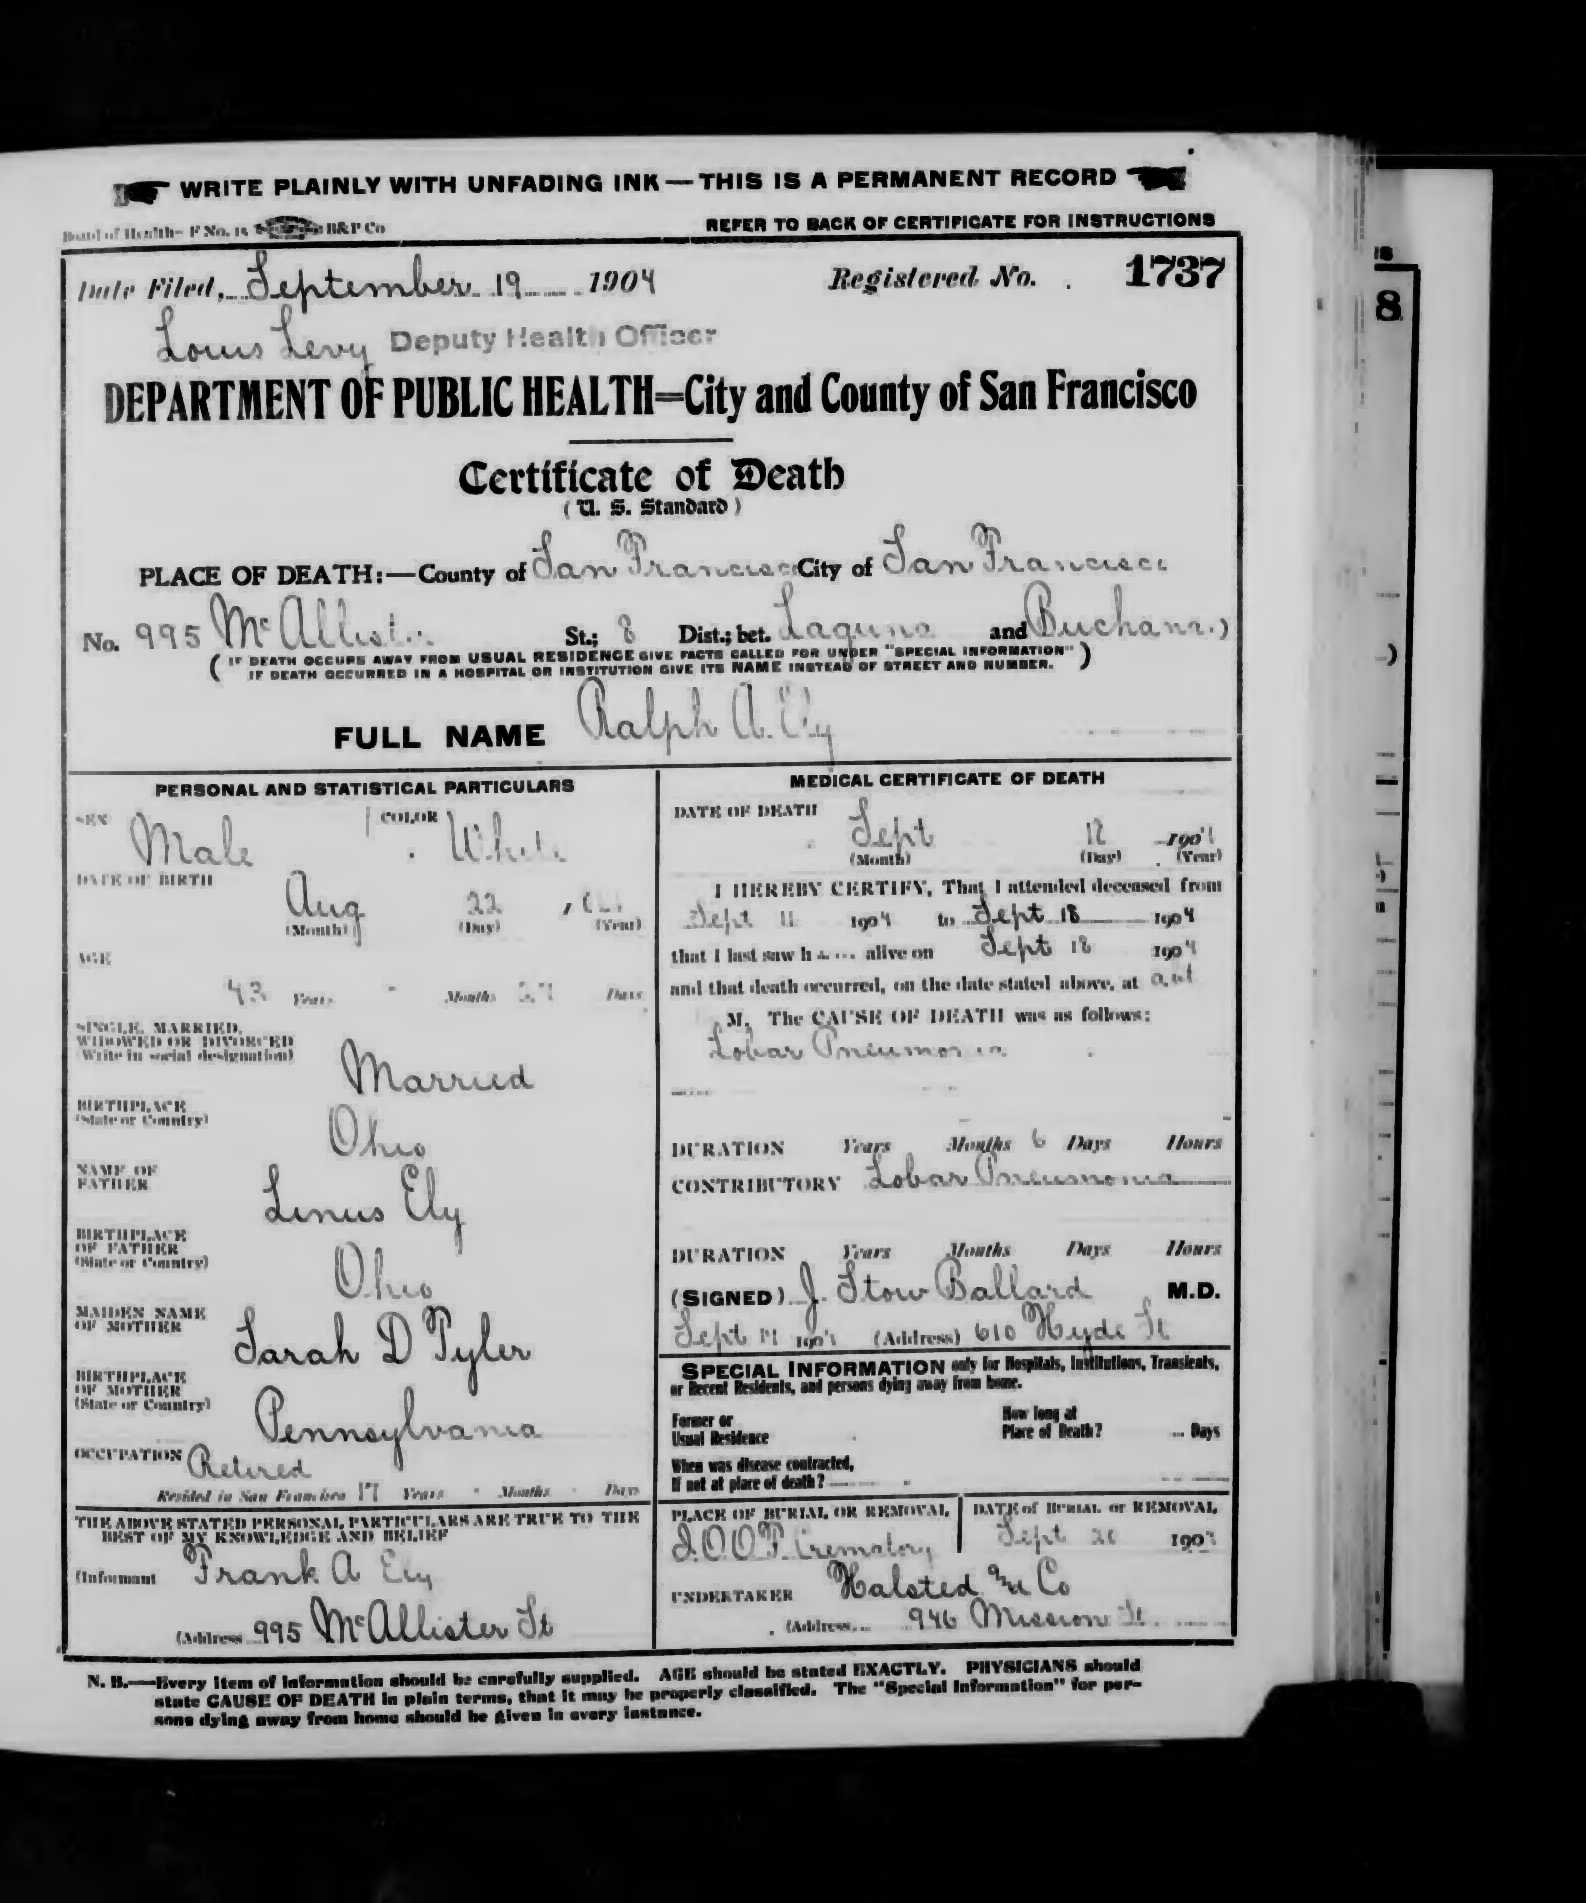 WRITE PLAINLY WITH UNFADING INK — THIS IS A PERMANENT RECORD
Board of Health- F No. 15 B&P Co
REFER TO BACK OF CERTIFICATE FOR INSTRUCTIONS
Date Filed, September 19 1904 Registered No. 1737
Louis Levy Deputy Health Officer
DEPARTMENT OF PUBLIC HEALTH=City and County of San Francisco
Certificate of Death
( U. S. Standard )
PLACE OF DEATH:—County of San Francisco City of San Francisco
No. 995 McAllister St.; 8 Dist.; bet. Laguna and Buchanan )
( IF DEATH OCCURS AWAY FROM USUAL RESIDENCE GIVE FACTS CALLED FOR UNDER "SPECIAL INFORMATION"
IF DEATH OCCURRED IN A HOSPITAL OR INSTITUTION GIVE ITS NAME INSTEAD OF STREET AND NUMBER. )
FULL NAME Ralph A. Ely
PERSONAL AND STATISTICAL PARTICULARS
SEX Male COLOR White
DATE OF BIRTH
Aug 22
(Month) (Day) (Year)
AGE
43 Years Months 27 Days
SINGLE, MARRIED,
WIDOWED OR DIVORCED
(Write in social designation)
Married
BIRTHPLACE
(State or Country)
Ohio
NAME OF
FATHER
Linus Ely
BIRTHPLACE
OF FATHER
(State or Country)
Ohio
MAIDEN NAME
OF MOTHER
Sarah D Tyler
BIRTHPLACE
OF MOTHER
(State or Country)
Pennsylvania
OCCUPATION Retired
Resided in San Francisco 17 Years Months Days
THE ABOVE STATED PERSONAL PARTICULARS ARE TRUE TO THE
BEST OF MY KNOWLEDGE AND BELIEF
(Informant Frank A Ely
(Address 995 McAllister St
MEDICAL CERTIFICATE OF DEATH
DATE OF DEATH
Sept 18 1904
(Month) (Day) (Year)
I HEREBY CERTIFY, That I attended deceased from
Sept 11 1904 to Sept 18 1904
that I last saw h alive on Sept 18 1904
and that death occurred, on the date stated above, at
M. The CAUSE OF DEATH was as follows:
Lobar Pneumonia
DURATION Years Months 6 Days Hours
CONTRIBUTORY Lobar Pneumonia
DURATION Years Months Days Hours
(SIGNED) J. Stow Ballard M.D.
Sept 1904 (Address) 610 Hyde St
SPECIAL INFORMATION only for Hospitals, Institutions, Transients,
or Recent Residents, and persons dying away from home.
Former or
Usual Residence
How long at
Place of Death? Days
When was disease contracted,
If not at place of death?
PLACE OF BURIAL OR REMOVAL
I.O.O.F. Crematory
DATE of BURIAL or REMOVAL
Sept 20 1904
UNDERTAKER Halsted and Co
(Address 946 Mission St.
N. B.—Every item of information should be carefully supplied. AGE should be stated EXACTLY. PHYSICIANS should
state CAUSE OF DEATH in plain terms, that it may be properly classified. The "Special Information" for per-
sons dying away from home should be given in every instance.
8